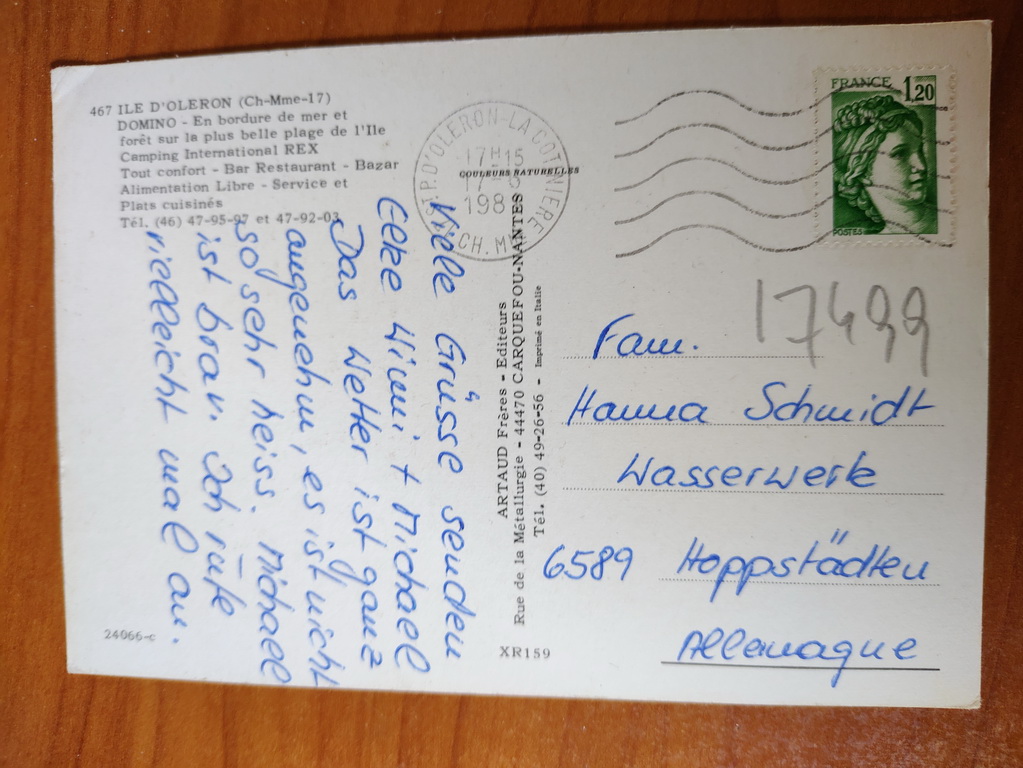 467 ILE D'OLERON (Ch-Mme-17)
DOMINO - En bordure de mer et
forêt sur la plus belle plage de l'Ile
Camping International REX
Tout confort - Bar Restaurant - Bazar
Alimentation Libre - Service et
Plats cuisinés
Tél. (46) 47-95-97 et 47-92-03
Viele Grüsse senden
Eeke Wimi + Michael
Das Wetter ist ganz
angenehm, es ist nicht
so sehr heiss. Michael
ist brav. Ich rufe
vielleicht mal an.
24066-c
D'OLERON-LA COTINIERE
17H15
17-8
198
CH. M
COULEURS NATURELLES
ARTAUD Frères - Editeurs
Rue de la Métallurgie - 44470 CARQUEFOU-NANTES
Tél. (40) 49-26-56 - Imprimé en Italie
XR159
FRANCE 1,20
POSTES
17499
Fam.
Hanna Schmidt
Wasserwerk
6589 Hoppstädten
Allemagne